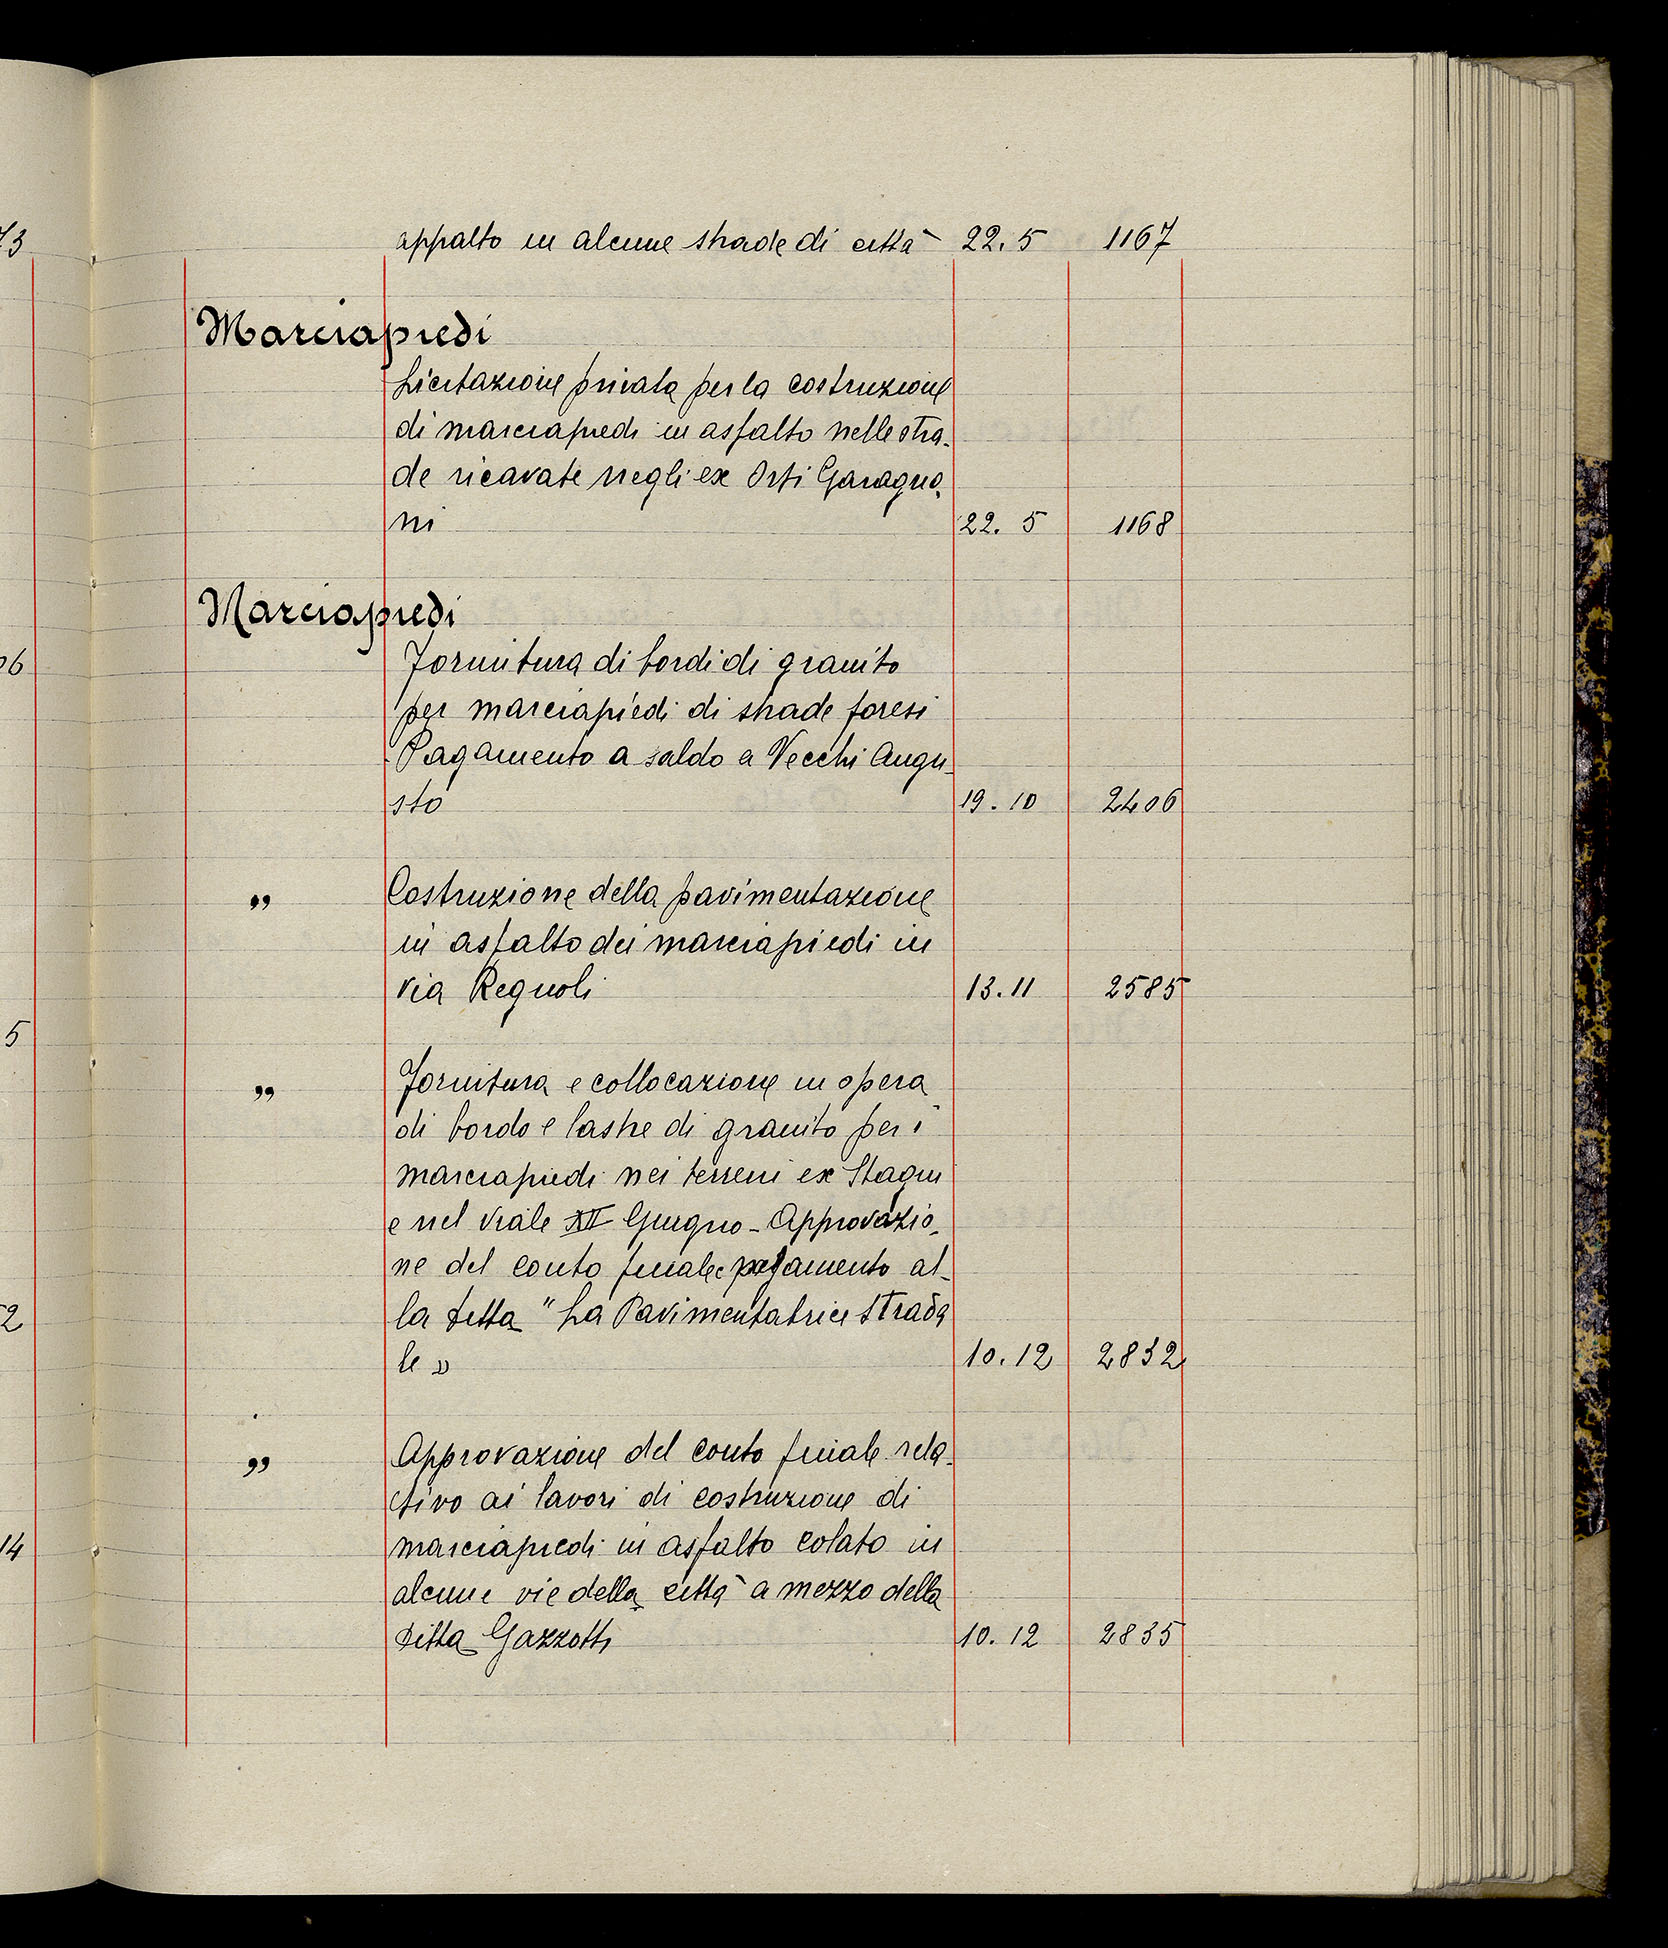 73
appalto in alcune strade di città 22.5 1167
Marciapiedi
Licitazione privata per la costruzione
di marciapiedi in asfalto nelle stra-
de ricavate negli ex Orti Garagna-
ni 22. 5 1168
Marciapiedi
06
Fornitura di bordi di granito
per marciapiedi di strade foresi
Pagamento a saldo a Vecchi Augu-
sto 19.10 2406
" Costruzione della pavimentazione
in asfalto dei marciapiedi in
via Regnoli 13.11 2585
5
" Fornitura e collocazione in opera
di bordo e lastre di granito per i
marciapiedi nei terreni ex Stagni
e nel viale XII Giugno - Approvazio-
ne del conto finale e pagamento al-
la ditta "La Pavimentatrice Strada
2
le" 10.12 2832
" Approvazione del conto finale rela-
tivo ai lavori di costruzione di
marciapiedi in asfalto colato in
14
alcune vie della città a mezzo della
ditta Gazzotti 10.12 2835